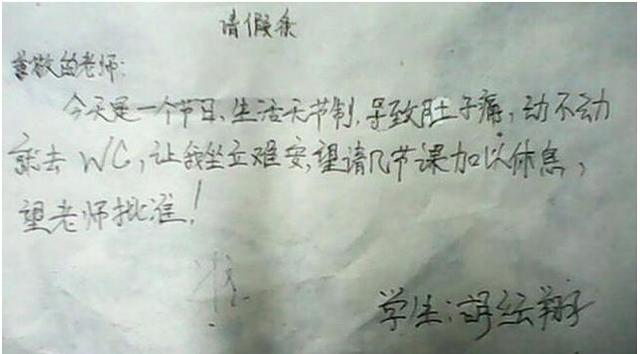 请假条
尊敬的老师:
今天是一个节日、生活无节制,导致肚子痛,动不动
就去 WC,让我坐立难安,望请几节课加以休息,
望老师批准!
准.
学生:胡